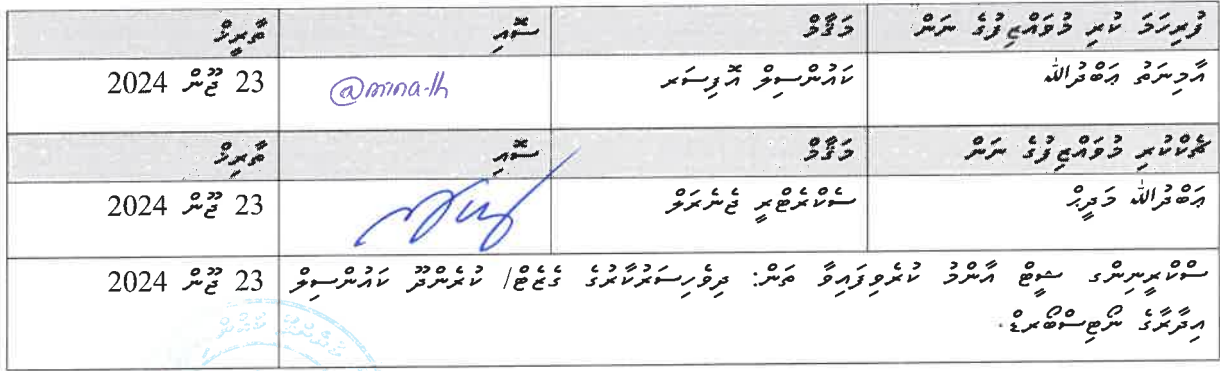 ފުރިހަމަ ކުރި މުވައްޒިފުގެ ނަން މަޤާމް ސޮއި ތާރީޚް
އާމިނަތު ޢަބްދުﷲ ކައުންސިލް އޮފިސަރ @mina-th 23 ޖޫން 2024
ޗެކްކުރި މުވައްޒިފުގެ ނަން މަޤާމް ސޮއި ތާރިޚް
ޢަބްދުﷲ މަދީޙް ސެކްރެޓްރީ ޖެނެރަލް 23 ޖޫން 2024
ސްކްރީނިންގ ޝީޓް އާންމު ކުރެވިފައިވާ ތަން: ދިވެހިސަރުކާރުގެ ގެޒެޓް/ ކުރެންދޫ ކައުންސިލް 23 ޖޫން 2024
އިދާރާގެ ނޯޓިސްބޯރޑް.